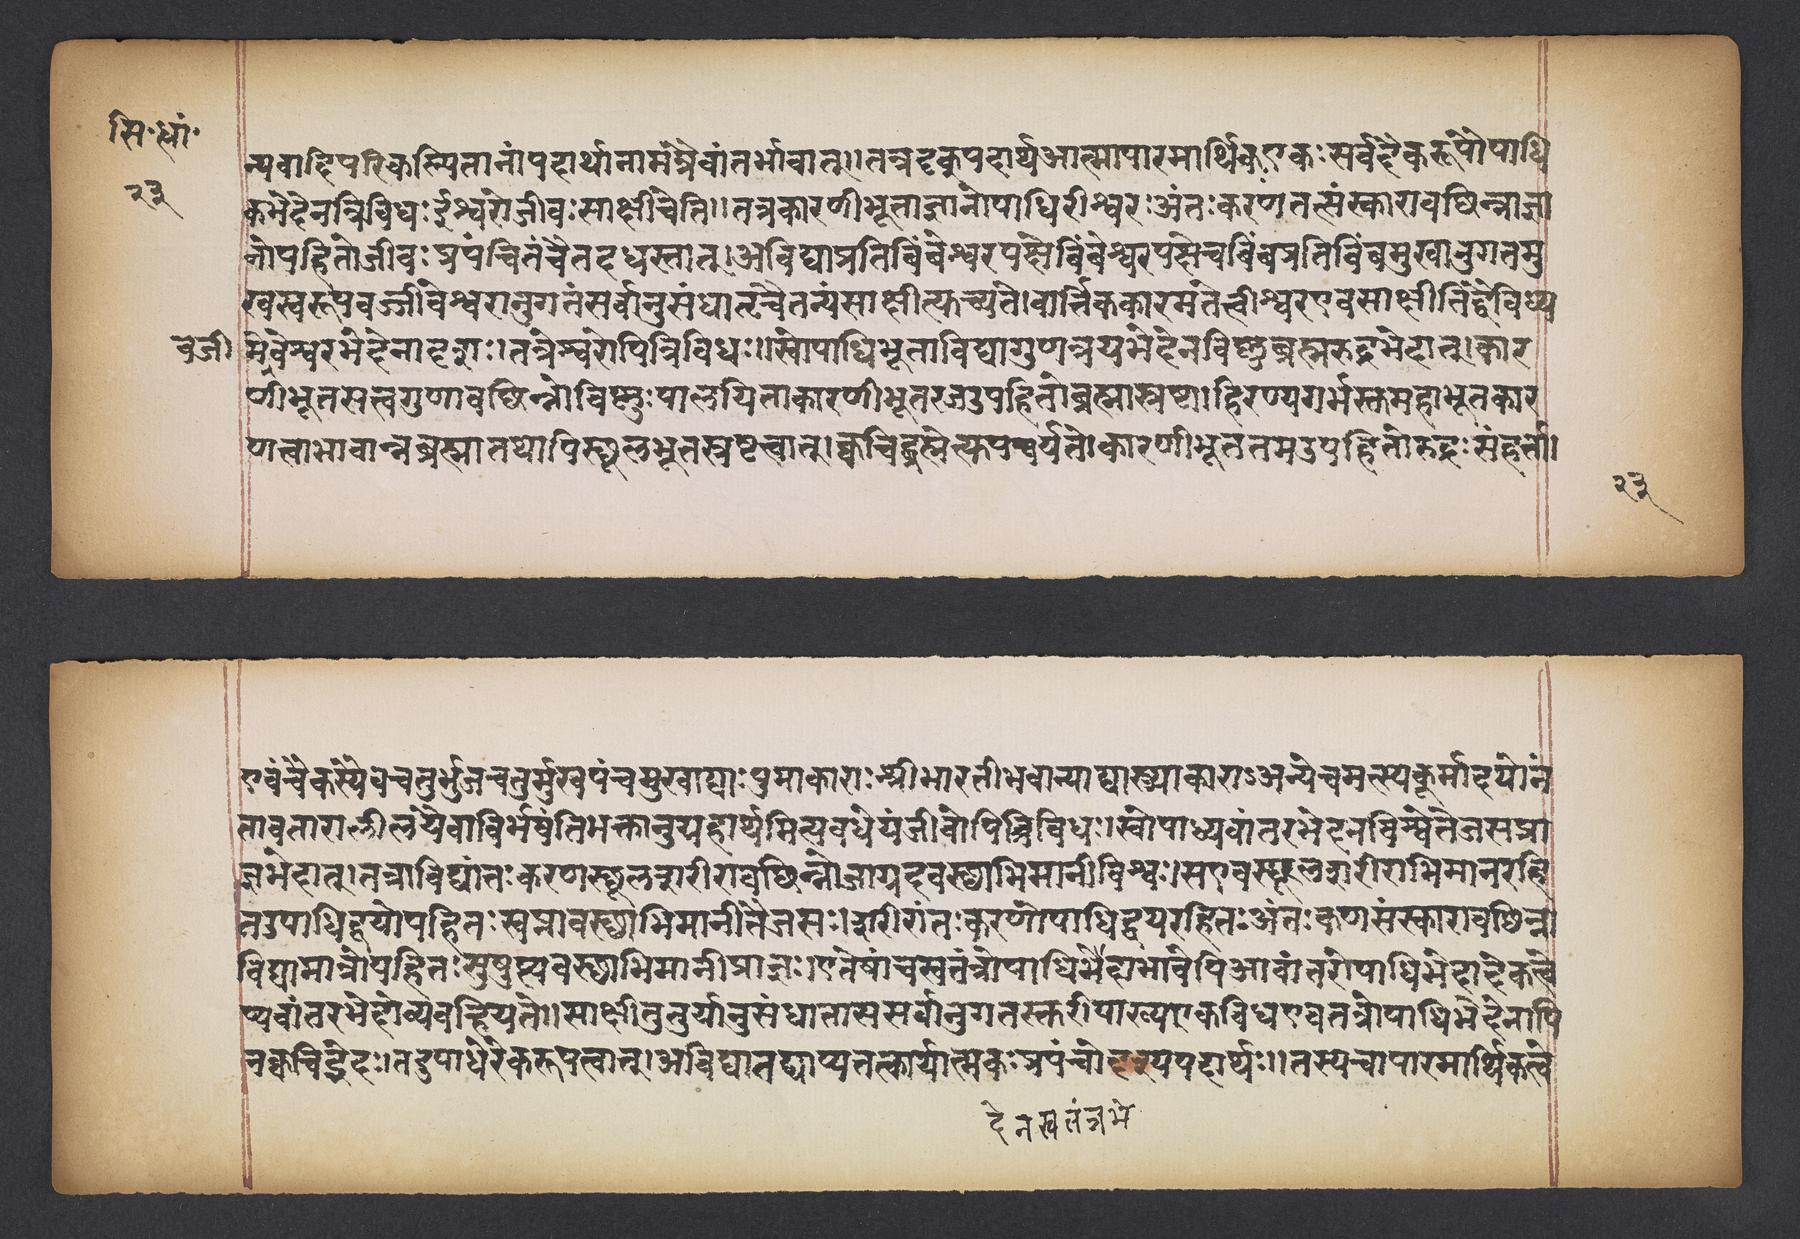 सि॰ध्वां॰
२३
न्यवादिपरिकल्पितानांपदार्थानामत्रैवांतर्भावात्॥तत्रदृक्पदार्थआत्मापारमार्थिकएकःसर्वदैकरूपोपाधि
कभेदेनत्रिविधःईश्वरोजीवःसाक्षीचेति॥तत्रकारणीभूताज्ञानोपाधिरीश्वरःअंतःकरणतत्संस्कारावछिन्नाज्ञा
नोपहितोजीवःप्रपंचितंचैतदधस्तात्।अविद्याप्रतिबिंबेश्वरपक्षेबिंबेश्वरपक्षेचबिंबप्रतिबिंबमुखानुगतमु
खस्वरूपवज्जीवेश्वरानुगतंसर्वानुसंधातृचैतन्यंसाक्षीत्युच्यते।वार्त्तिककारमतेत्वीश्वरएवसाक्षीतिद्वैविध्य
वजी
मेवेश्वरभेदेनादृशः।तत्रेश्वरोपित्रिविधः॥स्वोपाधिभूताविद्यागुणत्रयभेदेनविष्णुब्रह्मरुद्रभेदात्।कार
णीभूतसत्वगुणावछिन्नोविष्णुःपालयिताकारणीभूतरजउपहितोब्रह्मास्रष्टा।हिरण्यगर्भस्तुमहाभूतकार
णत्वाभावान्नब्रह्मातथापिस्थूलभूतस्रष्टृत्वात्।क्वचिद्ब्रह्मेत्युपचर्यते।कारणीभूततमउपहितोरुद्रःसंहर्ता।
२३
एवंचैकस्यैवचतुर्भुजचतुर्मुखपंचमुखाद्याःपुमाकाराःश्रीभारतीभवान्याद्यास्त्र्याकाराऽअन्येचमत्स्यकूर्मादयोनं
तावतारालीलयैवाविर्भवंतिभक्तानुग्रहार्थमित्यवधेयंजीवोपित्रिविधः।स्वोपाध्यवांतरभेदेनविश्वतैजसप्रा
ज्ञभेदात्।तत्राविद्यांतःकरणस्थूलशरीरावछिन्नोजाग्रदवस्थाभिमानीविश्वः।सएवस्थूलशरीराभिमानरहि
तउपाधिद्वयोपहितःस्वप्नावस्थाभिमानीतैजसः।शरीरांतःकरणोपाधिद्वयरहितःअंतःकणसंस्कारावछिन्ना
विद्यामात्रोपहितःसुषुप्त्यवस्थाभिमानीप्राज्ञः।एतेषांचस्वतंत्रोपाधिभेदाभावेपिआवांतरोपाधिभेदादेकत्वे
प्यवांतरभेदोव्यवह्रियते॥साक्षीतुतुर्यानुसंधातासर्वानुगतस्तुरीयाख्यएकविधएवतत्रोपाधिभेदेनापि
नक्वचिद्भेदः।तदुपाधेरेकरूपत्वात्।अविद्यातद्याप्यतत्कार्यात्मकःप्रपंचोदृश्यपदार्थः॥तस्यचापारमार्थिकत्वे
देनस्वतंत्रभे